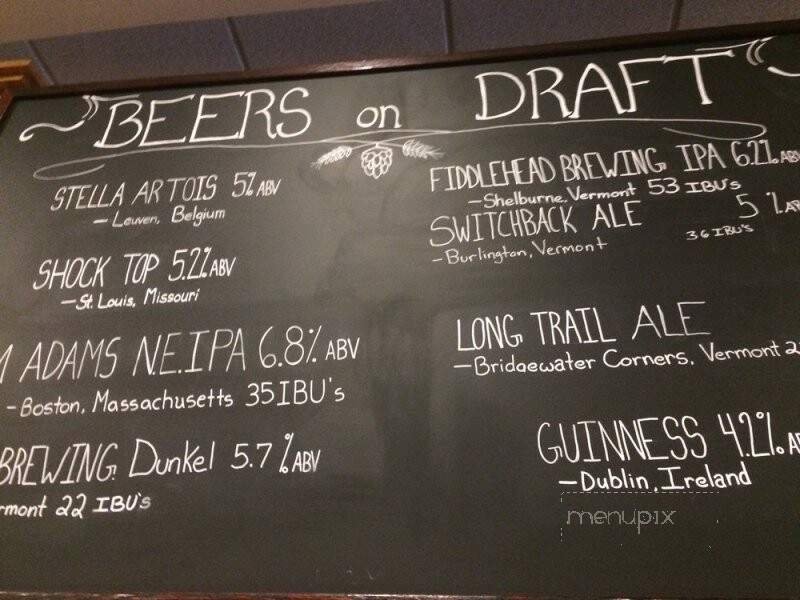 BEERS on DRAFT
STELLA ARTOIS 5% ABV
- Leuven, Belgium
SHOCK TOP 5.2% ABV
- St. Louis, Missouri
ADAMS N.E.IPA 6.8% ABV
- Boston, Massachusetts 35 IBU's
BREWING Dunkel 5.7% ABV
22 IBU's
FIDDLEHEAD BREWING IPA 6.2% ABV
- Shelburne, Vermont 53 IBU's
SWITCHBACK ALE 5%
- Burlington, Vermont 36 IBU's
LONG TRAIL ALE
- Bridgewater Corners, Vermont
GUINNESS 4.2%
- Dublin, Ireland
menupix